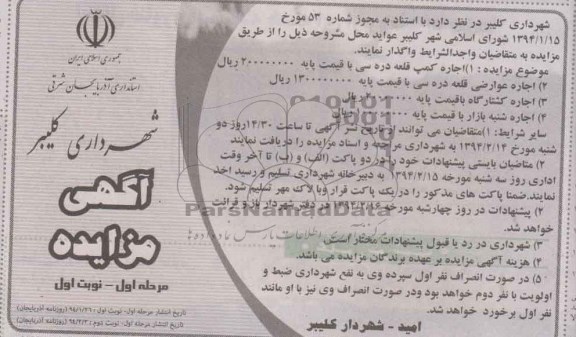 شهرداری کلیبر در نظر دارد با استناد به مجوز شماره ۵۳ مورخ
۱۳۹۴/۱/۱۵ شورای اسلامی شهر کلیبر عواید محل مشروحه ذیل را از طریق
مزایده به متقاضیان واجدالشرایط واگذار نمایند.
موضوع مزایده : ۱)اجاره کمپ قلعه دره سی با قیمت پایه ریال
۲) اجاره عوارضی قلعه دره سی با قیمت پایه ریال
۳) اجاره کشتارگاه باقیمت پایه ریال
۴) اجاره شنبه بازار با قیمت پایه ریال
سایر شرایط: ۱)متقاضیان می توانند از تاریخ نشر آگهی تا ساعت ۱۴/۳۰ روز دو
شنبه مورخ ۱۳۹۴/۲/۱۴ به شهرداری مراجعه و اسناد مزایده را دریافت نمایند
۲) متقاضیان بایستی پیشنهادات خود را در دو پاکت (الف) و (ب) تا آخر وقت
اداری روز سه شنبه مورخه ۱۳۹۴/۲/۱۵ به دبیرخانه شهرداری تسلیم و رسید اخذ
نمایند.ضمنا پاکت های مذکور را در یک پاکت قرار و با لاک مهر تسلیم شود.
۲) پیشنهادات در روز چهارشنبه مورخه ۱۳۹۴/۲/۱۶ در دفتر شهردار باز و قرائت
خواهد شد.
۳) شهرداری در رد یا قبول پیشنهادات مختار است.
۴) هزینه آگهی مزایده بر عهده برندگان مزایده می باشد.
۵) در صورت انصراف نفر اول سپرده وی به نفع شهرداری ضبط و
اولویت با نفر دوم خواهد بود ودر صورت انصراف وی نیز با او مانند
نفر اول برخورد خواهد شد.
امید - شهردار کلیبر
جمهوری اسلامی ایران
استانداری آذربایجان شرقی
شهرداری کلیبر
آگهی
مزایده
مرحله اول - نوبت اول
تاریخ انتشار مرحله اول- نوبت اول : ۹۴/۱/۲۶ (روزنامه: آذربایجان)
تاریخ انتشار مرحله اول- نوبت دوم : ۹۴/۲/۳ (روزنامه: آذربایجان)
ParsNamadData